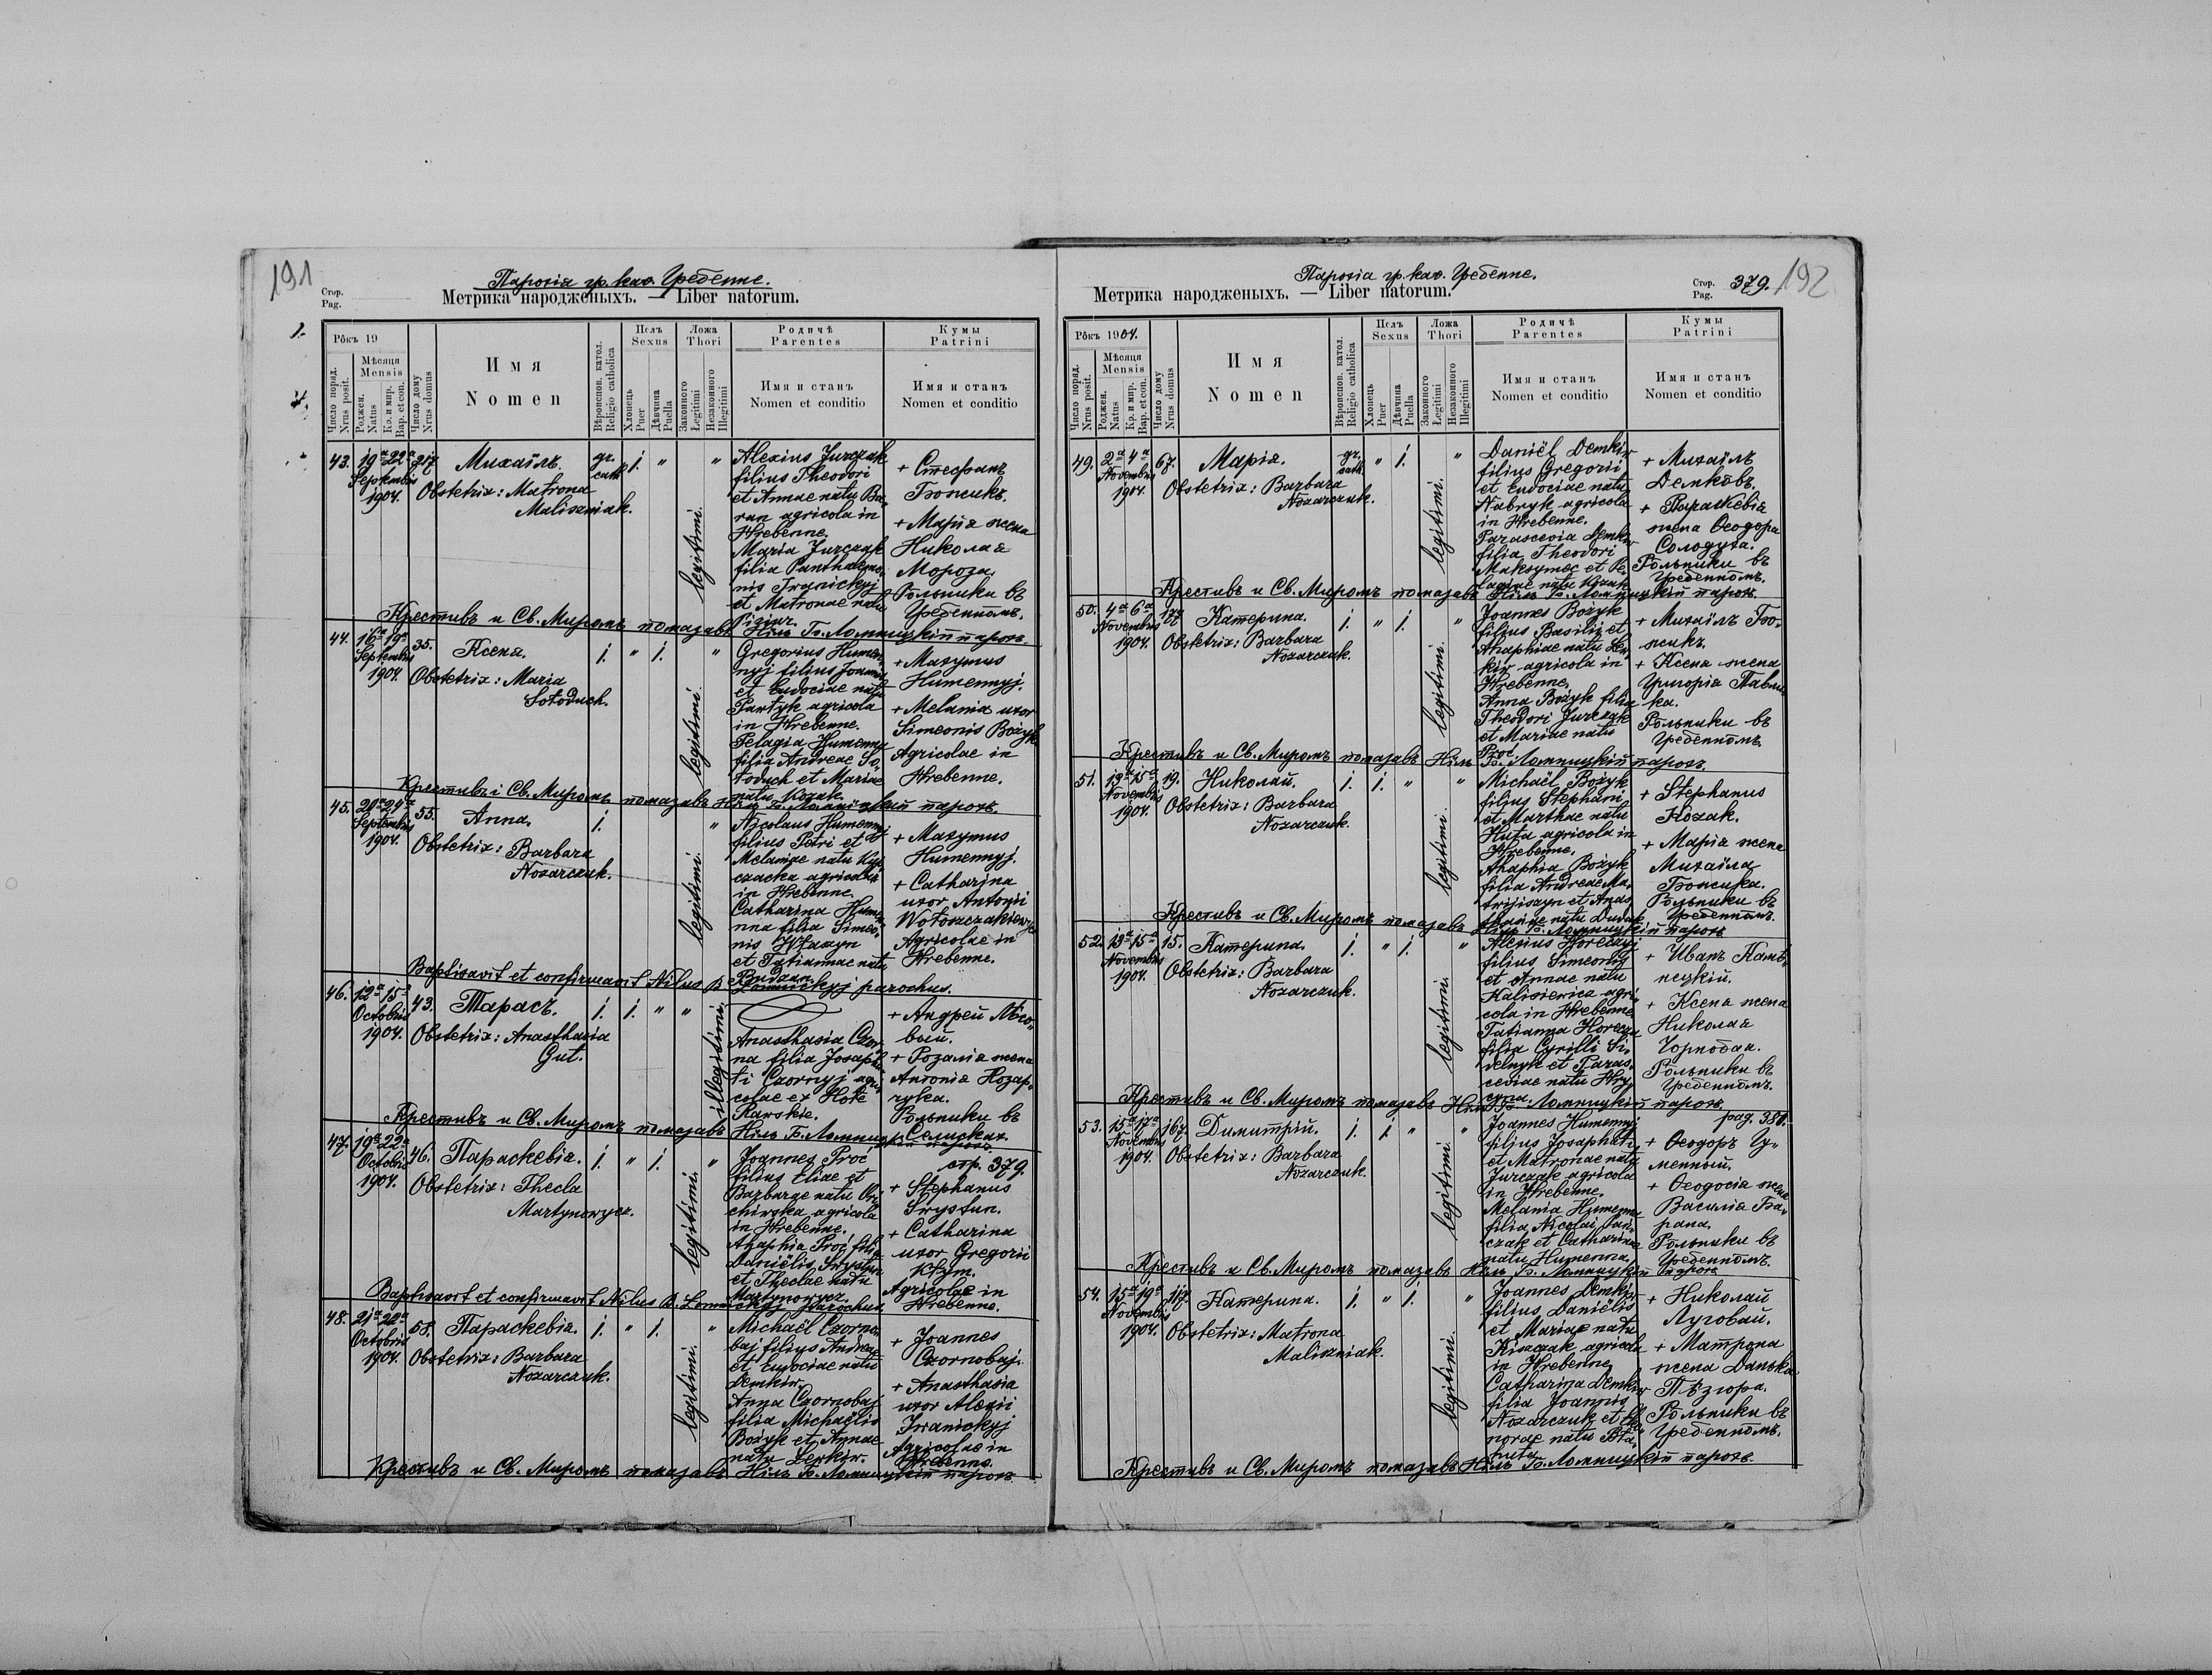 191
Парохія гр. кат. Гребенне.
Стор.
Pag.
Метрика народженыхъ. — Liber natorum.
Рôкъ 19
Число поряд.
Nrus posit.
Мѣсяця
Mensis
Роджен.
Natus
Кр. и мир.
Bap. et con.
Число дому
Nrus domus
Имя
Nomen
Вѣроиспов. катол.
Religio catholica
Пслъ
Sexus
Хлопець
Puer
Дѣвчина
Puella
Ложа
Thori
Законного
Legitimi
Незаконного
Illegitimi
Родичѣ
Parentes
Имя и станъ
Nomen et conditio
Кумы
Patrini
Имя и станъ
Nomen et conditio
43. 19ª 22ª 217
Septembris
1904.
Михаилъ.
Obstetrix: Matrona
Maliszniak.
gr. cath. 1. " "
legitimi.
Alexius Jurczak
filius Theodori
et Annae natu Ba-
ran agricola in
Hrebenne.
Maria Jurczak
filia Panthalemo-
nis Iwanickyj
et Matronae natu
+ Стефанъ
Божикъ.
+ Марія жена
Николая
Мороза.
Рольники въ
Гребенномъ.
Крестивъ и Св. Миромъ помазавъ Нілъ Б. Ломницкій парохъ.
44. 16ª 19ª 35.
Septembris
1904.
Ксеня.
Obstetrix: Maria
Sołoduch.
1. " 1. "
legitimi.
Gregorius Humen-
nyj filius Joannis
et Eudociae natu
Pantyk agricola
in Hrebenne.
Pelagia Humenna
filia Andreae So-
łoduch et Mariae
natu Kozak.
+ Maxymus
Humennyj.
+ Melania uxor
Simeonis Bożyk
Agricolae in
Hrebenne.
Крестивъ і Св. Миромъ помазавъ Нілъ Б. Ломницкій парохъ.
45. 55.
Septembris
1904.
Anna.
Obstetrix: Barbara
Nozarczuk.
1. "
legitimi.
Nicolaus Humennyj
filius Petri et
Melaniae natu
agricola
in Hrebenne.
Catharina Humen-
nna filia Simeo-
nis
et Tatiannae natu
Budzan.
+ Maxymus
Humennyj.
+ Catharina
uxor Antonii
Wołoszczakiewicz
Agricolae in
Hrebenne.
Baptisavit et confirmavit Nilus B. Łomnickyj parochus.
46. 12ª 15ª 43.
Octobris
1904.
Тарасъ.
Obstetrix: Anasthasia
Gut.
1. 1. " "
illegitimi.
Anasthasia Czor-
na filia Josapha-
ti Czornyj agri-
colae ex Hołe
Rawskie.
+ Андрей Лѣсо-
вый.
+ Розалія жена
Антонія Нозар-
чука.
Рольники въ
Селискахъ.
Крестивъ и Св. Миромъ помазавъ Нілъ Б. Ломницкій парохъ.
47. 19ª 22ª 46.
Octobris
1904.
Параскевія.
Obstetrix: Thecla
Martynowycz.
1. " 1. "
legitimi.
Joannes Proć
filius Eliae et
Barbarae natu
agricola
in Hrebenne.
Ahaphia Proć filia
Daniëlis Swystun
et Theclae natu
Martynowycz.
стр. 379.
+ Stephanus
Swystun.
+ Catharina
uxor Gregorii
Kłym.
Agricolae in
Hrebenne.
Baptisavit et confirmavit Nilus B. Łomnickyj parochus.
48. 21ª 22ª 58.
Octobris
1904.
Параскевія.
Obstetrix: Barbara
Nozarczuk.
1. " 1. "
legitimi.
Michaël Czorno-
baj filius Andreae
et Eudociae natu
Demkiw.
Anna Czornobaj
filia Michaëlis
Bożyk et Annae
natu Lewkiw.
+ Joannes
Czornobaj.
+ Anasthasia
uxor Alexii
Iwanickyj
Agricolae in
Hrebenne.
Крестивъ и Св. Миромъ помазавъ Нілъ Б. Ломницкій парохъ.
Парохія гр. кат. Гребенне.
Метрика народженыхъ. — Liber natorum.
Стор.
Pag. 379. 192
Рôкъ 1904.
Число поряд.
Nrus posit.
Мѣсяця
Mensis
Роджен.
Natus
Кр. и мир.
Bap. et con.
Число дому
Nrus domus
Имя
Nomen
Вѣроиспов. катол.
Religio catholica
Пслъ
Sexus
Хлопець
Puer
Дѣвчина
Puella
Ложа
Thori
Законного
Legitimi
Незаконного
Illegitimi
Родичѣ
Parentes
Имя и станъ
Nomen et conditio
Кумы
Patrini
Имя и станъ
Nomen et conditio
49. 2ª 4ª 67.
Novembris
1904.
Марія.
Obstetrix: Barbara
Nozarczuk.
gr. cath. " 1. "
legitimi.
Daniël Demkiw
filius Gregorii
et Eudociae natu
Nabryk agricola
in Hrebenne.
Parascevia Demkiw
filia Theodori
Maksymec et Pe-
lagiae natu Kozak
+ Михаилъ
Демкôвъ.
+ Параскевія
жена Ѳеодора
Солодуха.
Рольники въ
Гребенномъ.
Крестивъ и Св. Миромъ помазавъ Нілъ Б. Ломницкій парохъ.
50. 4ª 6ª
Novembris
1904.
Катерина.
Obstetrix: Barbara
Nozarczuk.
1. " 1. "
legitimi.
Joannes Bożyk
filius Basilii et
Ahaphiae natu Lew-
kiw agricola in
Hrebenne.
Anna Bożyk filia
Theodori Jurczak
et Mariae natu
Proć
+ Михаилъ Бо-
жикъ.
+ Ксеня жена
Григорія Павлы-
ка.
Рольники въ
Гребенномъ.
Крестивъ и Св. Миромъ помазавъ Нілъ Б. Ломницкій парохъ.
51. 13ª 15ª 19.
Novembris
1904.
Николай.
Obstetrix: Barbara
Nozarczuk.
1. 1. " "
legitimi.
Michaël Bożyk
filius Stephani
et Marthae natu
Huta agricola in
Hrebenne.
Ahaphia Bożyk
filia Andreae Ma-
trijiszyn et Anas-
thasiae natu Dudak
+ Stephanus
Kozak.
+ Марія жена
Михаила
Божика.
Рольники въ
Гребенномъ.
Крестивъ и Св. Миромъ помазавъ Нілъ Б. Ломницкій парохъ
52. 13ª 15ª 15.
Novembris
1904.
Катерина.
Obstetrix: Barbara
Nozarczuk.
1. " 1. "
legitimi.
Alexius Horeczyj
filius Simeonis
et Annae natu
Kalisiewicz agri-
cola in Hrebenne
Tatianna Horecza
filia Cyrilli Si-
delnyk et Paras-
ceviae natu Hry-
cyna.
+ Иванъ Камѣ-
нецкій.
+ Ксеня жена
Николая
Чорнобая.
Рольники въ
Гребенномъ.
Крестивъ и Св. Миромъ помазавъ Нілъ Б. Ломницкій парохъ.
53. 15ª 17ª 167.
Novembris
1904.
Димитрій.
Obstetrix: Barbara
Nozarczuk.
1. 1. " "
legitimi.
Joannes Humennyj
filius Josaphati
et Matronae natu
Jurczak agricola
in Hrebenne.
Melania Humenna
filia Nicolai
czak et Catharinae
natu Humenna.
pag. 380.
+ Ѳеодоръ Гу-
менный.
+ Ѳеодосія жена
Василія Ба-
рана.
Рольники въ
Гребенномъ.
Крестивъ и Св. Миромъ помазавъ Нілъ Б. Ломницкій парохъ
54. 15ª 19ª 117.
Novembris
1904.
Катерина.
Obstetrix: Matrona
Maliszniak.
1. " 1. "
legitimi.
Joannes Demkiw
filius Daniëlis
et Mariae natu
Kiszczak agricola
in Hrebenne
Catharina Demkiw
filia Joannis
Nozarczuk et Eleo-
norae natu
+ Николай
Луговый.
+ Матрона
жена Данька
Пѣзюра.
Рольники въ
Гребенномъ.
Крестивъ и Св. Миромъ помазавъ Нілъ Б. Ломницкій парохъ.